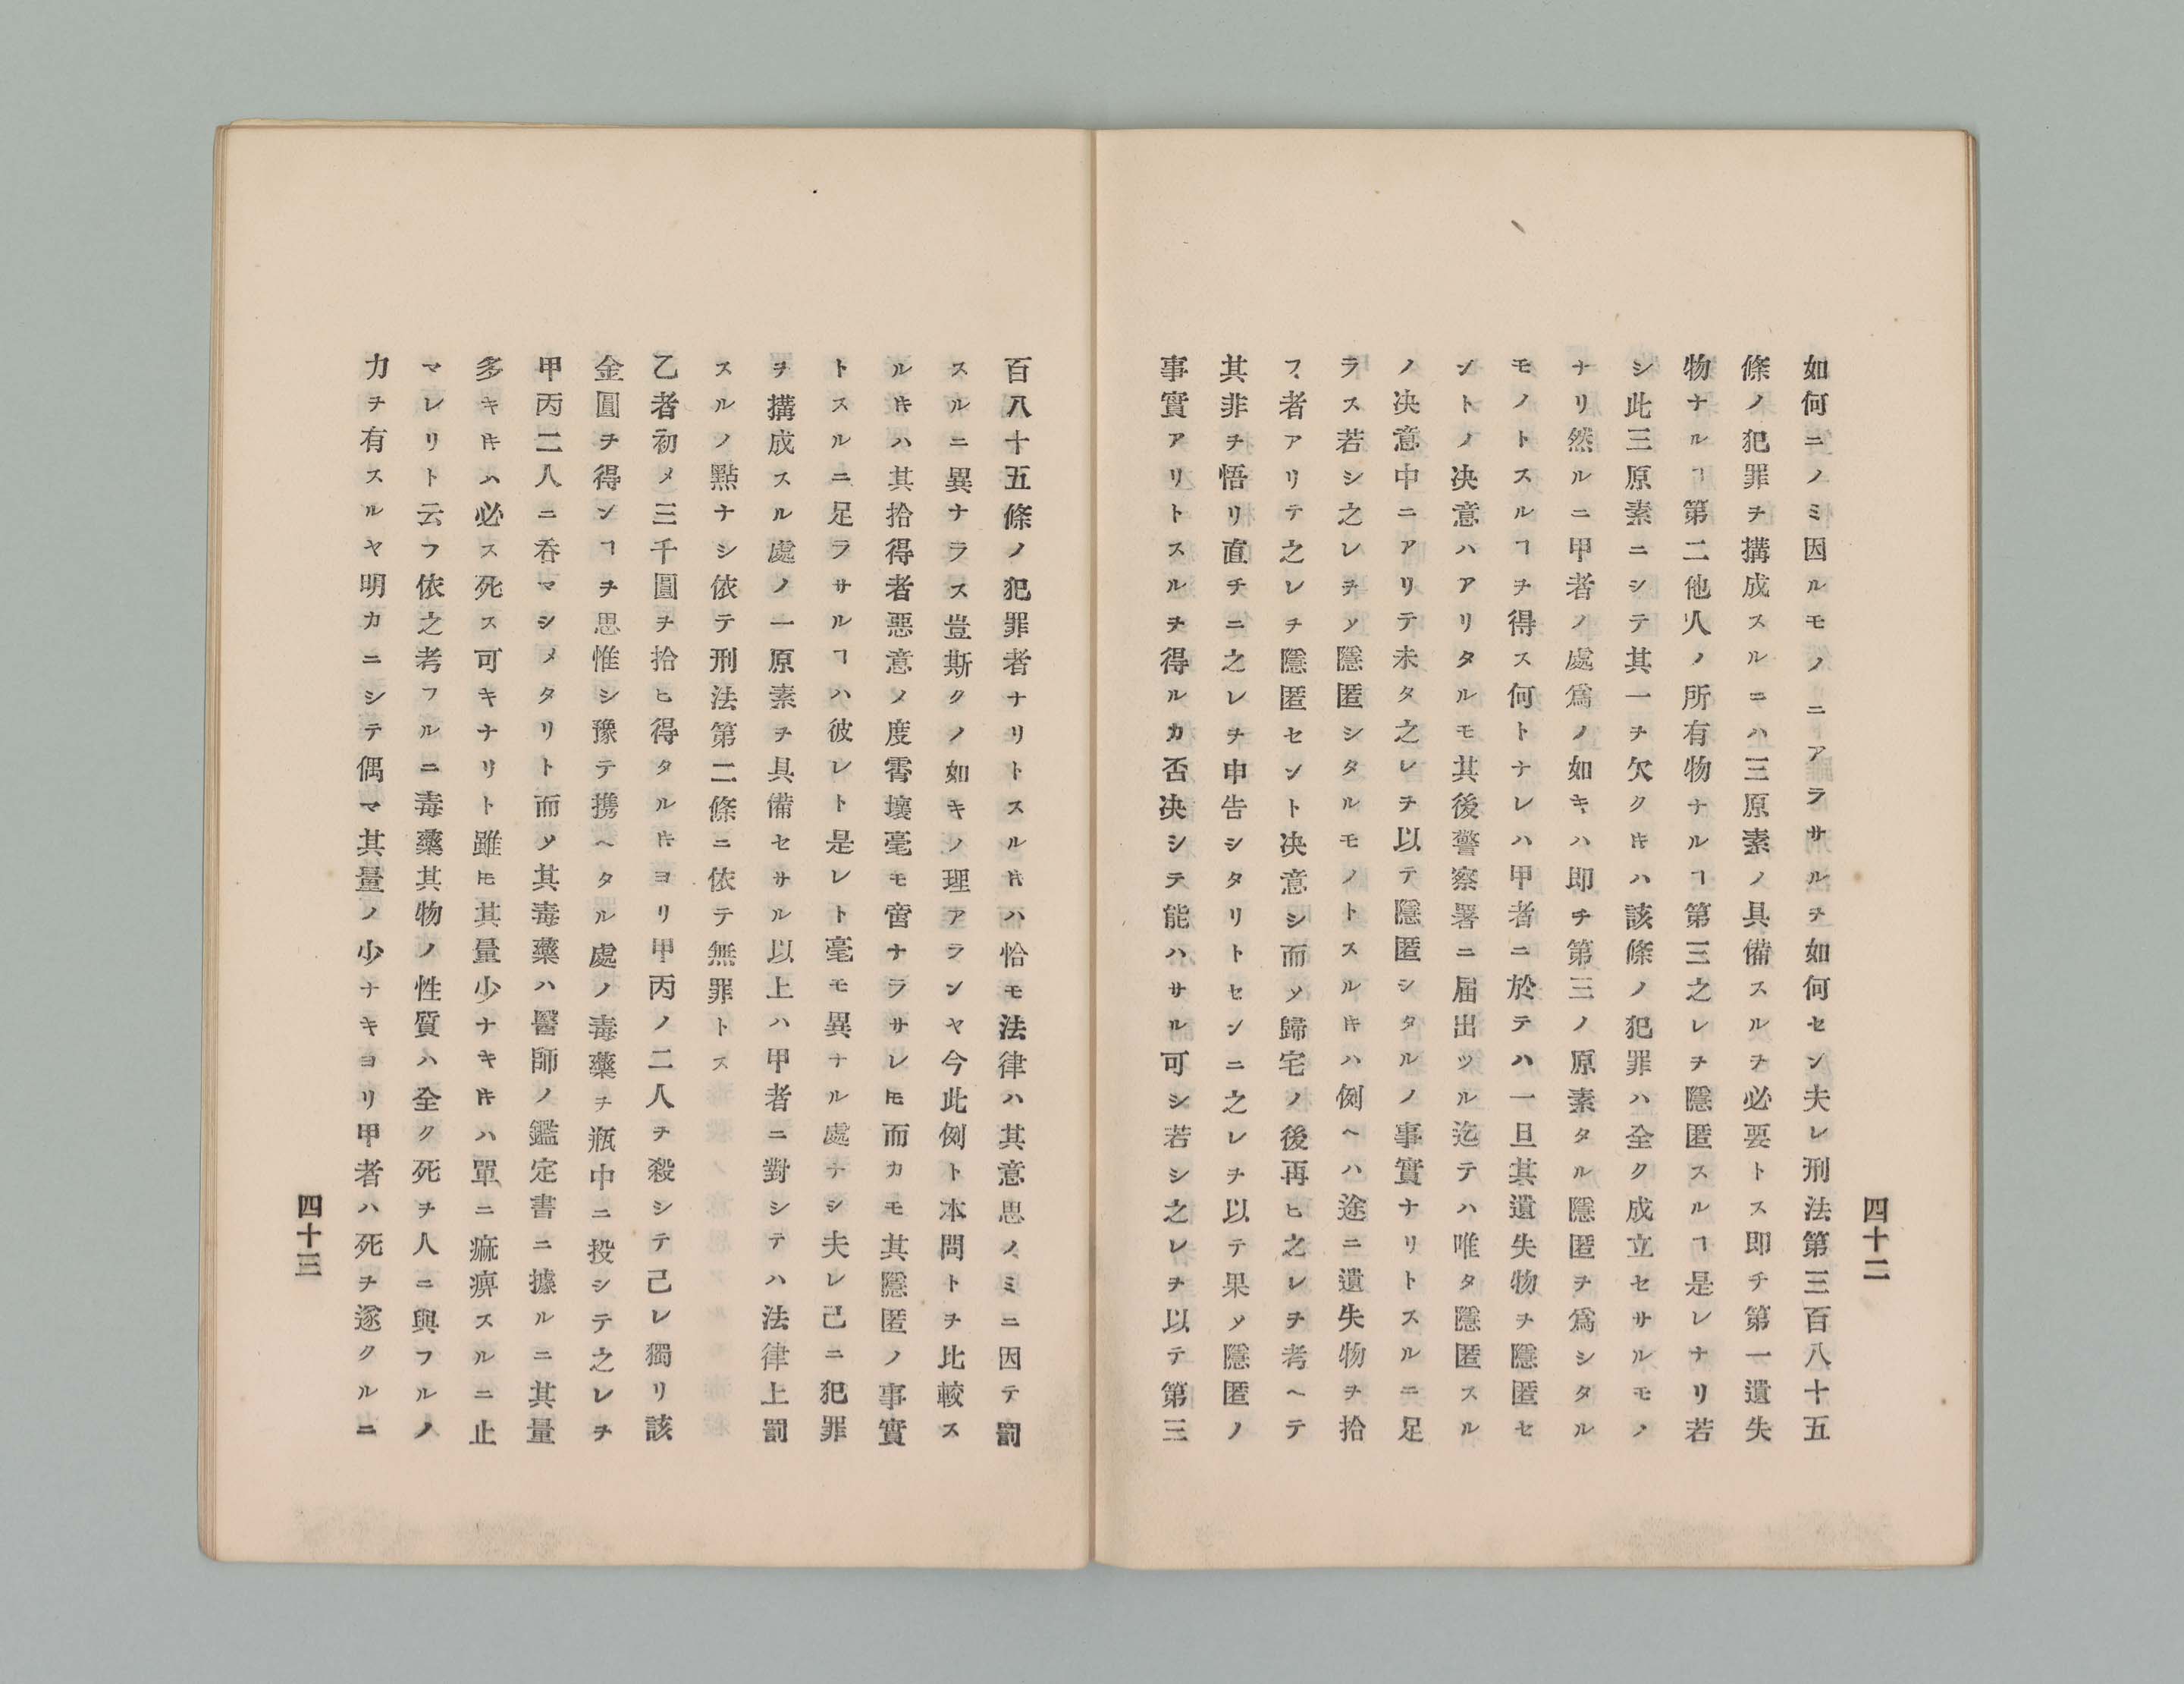 四十二
如何ニノミ因ルモノニアラサルヲ如何セン夫レ刑法第三百八十五
條ノ犯罪ヲ搆成スルニハ三原素ノ具備スルヲ必要トス即チ第一遺失
物ナルヿ第二他人ノ所有物ナルヿ第三之レヲ隱匿スルヿ是レナリ若
シ此三原素ニシテ其一ヲ欠クキハ該條ノ犯罪ハ全ク成立セサルモノ
ナリ然ルニ甲者ノ處爲ノ如キハ即チ第三ノ原素タル隱匿ヲ爲シタル
モノトスルヿヲ得ス何トナレハ甲者ニ於テハ一旦其遺失物ヲ隱匿セ
ントノ决意ハアリタルモ其後警察署ニ届出ツル迄テハ唯タ隱匿スル
ノ决意中ニアリテ未タ之レヲ以テ隱匿シタルノ事實ナリトスルニ足
ラス若シ之レヲソ隱匿シタルモノトスルキハ例ヘハ途ニ遺失物ヲ拾
フ者アリテ之レヲ隱匿セント决意シ而ソ歸宅ノ後再ヒ之レヲ考ヘテ
其非ヲ悟リ直チニ之レヲ申告シタリトセンニ之レヲ以テ果ソ隱匿ノ
事實アリトスルヲ得ルカ否决シテ能ハサル可シ若シ之レヲ以テ第三
百八十五條ノ犯罪者ナリトスルキハ恰モ法律ハ其意思ノミニ因テ罰
スルニ異ナラス豈斯クノ如キノ理アランヤ今此例ト本問トヲ比較ス
ルキハ其拾得者惡意ノ度霄壤毫モ啻ナラサレ𪜈而カモ其隱匿ノ事實
トスルニ足ラサルヿハ彼レト是レト毫モ異ナル處ナシ夫レ己ニ犯罪
ヲ搆成スル處ノ一原素ヲ具備セサル以上ハ甲者ニ對シテハ法律上罰
スルノ點ナシ依テ刑法第二條ニ依テ無罪トス
乙者初メ三千圓ヲ拾ヒ得タルキヨリ甲丙ノ二人ヲ殺シテ己レ獨リ該
金圓ヲ得ンヿヲ思惟シ豫テ携ヘタル處ノ毒藥ヲ瓶中ニ投シテ之レヲ
甲丙二人ニ呑マシメタリト而ソ其毒藥ハ醫師ノ鑑定書ニ據ルニ其量
多キキハ必ス死ス可キナリト雖𪜈其量少ナキキハ單ニ痲痹スルニ止
マレリト云フ依之考フルニ毒藥其物ノ性質ハ全ク死ヲ人ニ與フルノ
力ヲ有スルヤ明カニシテ偶マ其量ノ少ナキヨリ甲者ハ死ヲ遂クルニ
四十三